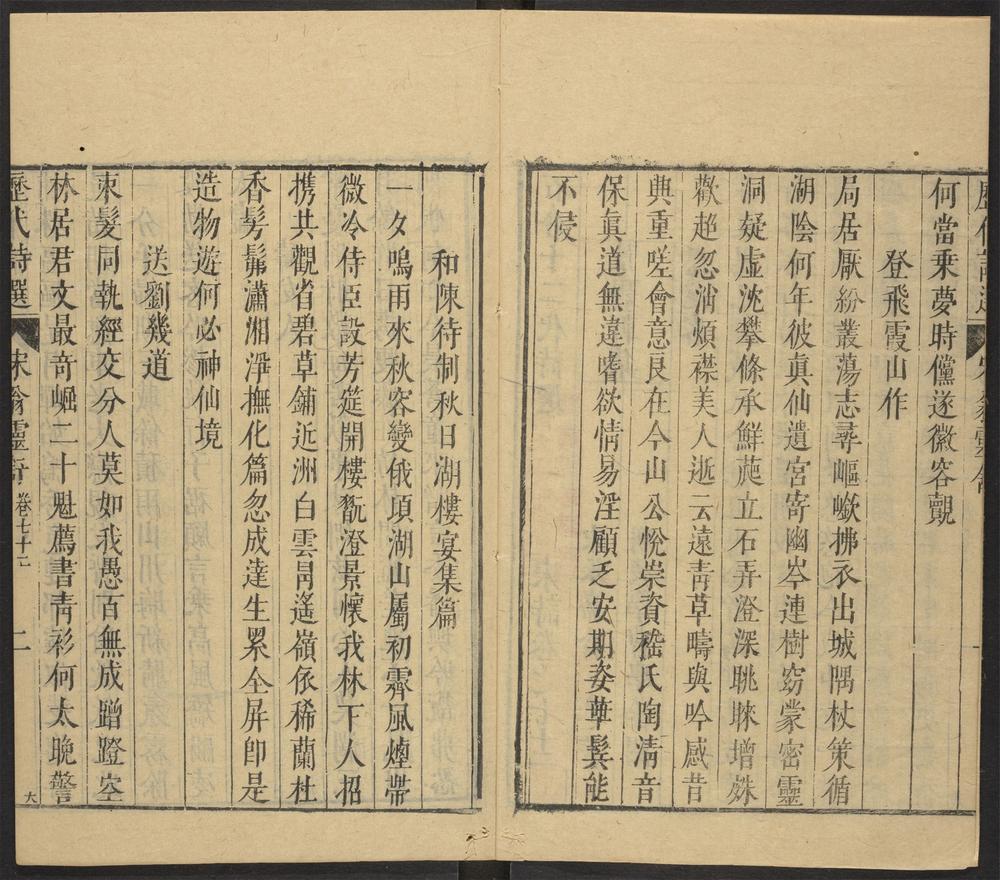 何當乗夢時儻遂徽容覿
登飛霞山作
局居厭紛叢蕩志尋嶇嶔拂衣出城隅杖策循
湖陰何年彼眞仙遺宮寄幽岑連樹窈蒙密靈
洞疑虛沈攀條承鮮葩立石弄澄深眺睞增姝
歡趨忽淌煩襟美人逝云遠靑草疇與吟感昔
典重嗟會意良在今山公悅崇資嵇氏陶淸音
保眞道無違嗜欲情易淫顧乏安期姿華鬂能
不侵
和陳待制秋日湖樓宴集篇
一夕鳴雨來秋容變俄頃湖山屬初霽風煙帶
微冷侍臣設芳筵開樓翫澄景懷我林下人招
携共觀省碧草鋪近洲白雲冐遙嶺依稀蘭杜
香髣髴瀟湘淨撫化篇忽成達生累全屏卽是
造物遊何必神仙境
送劉幾道
束髮同執經交分人莫如我愚百無成蹭蹬空
林居君文最奇崛二十魁薦書靑衫何太晚警
歷代詩選 宋翁靈舒 卷七十二 二
大